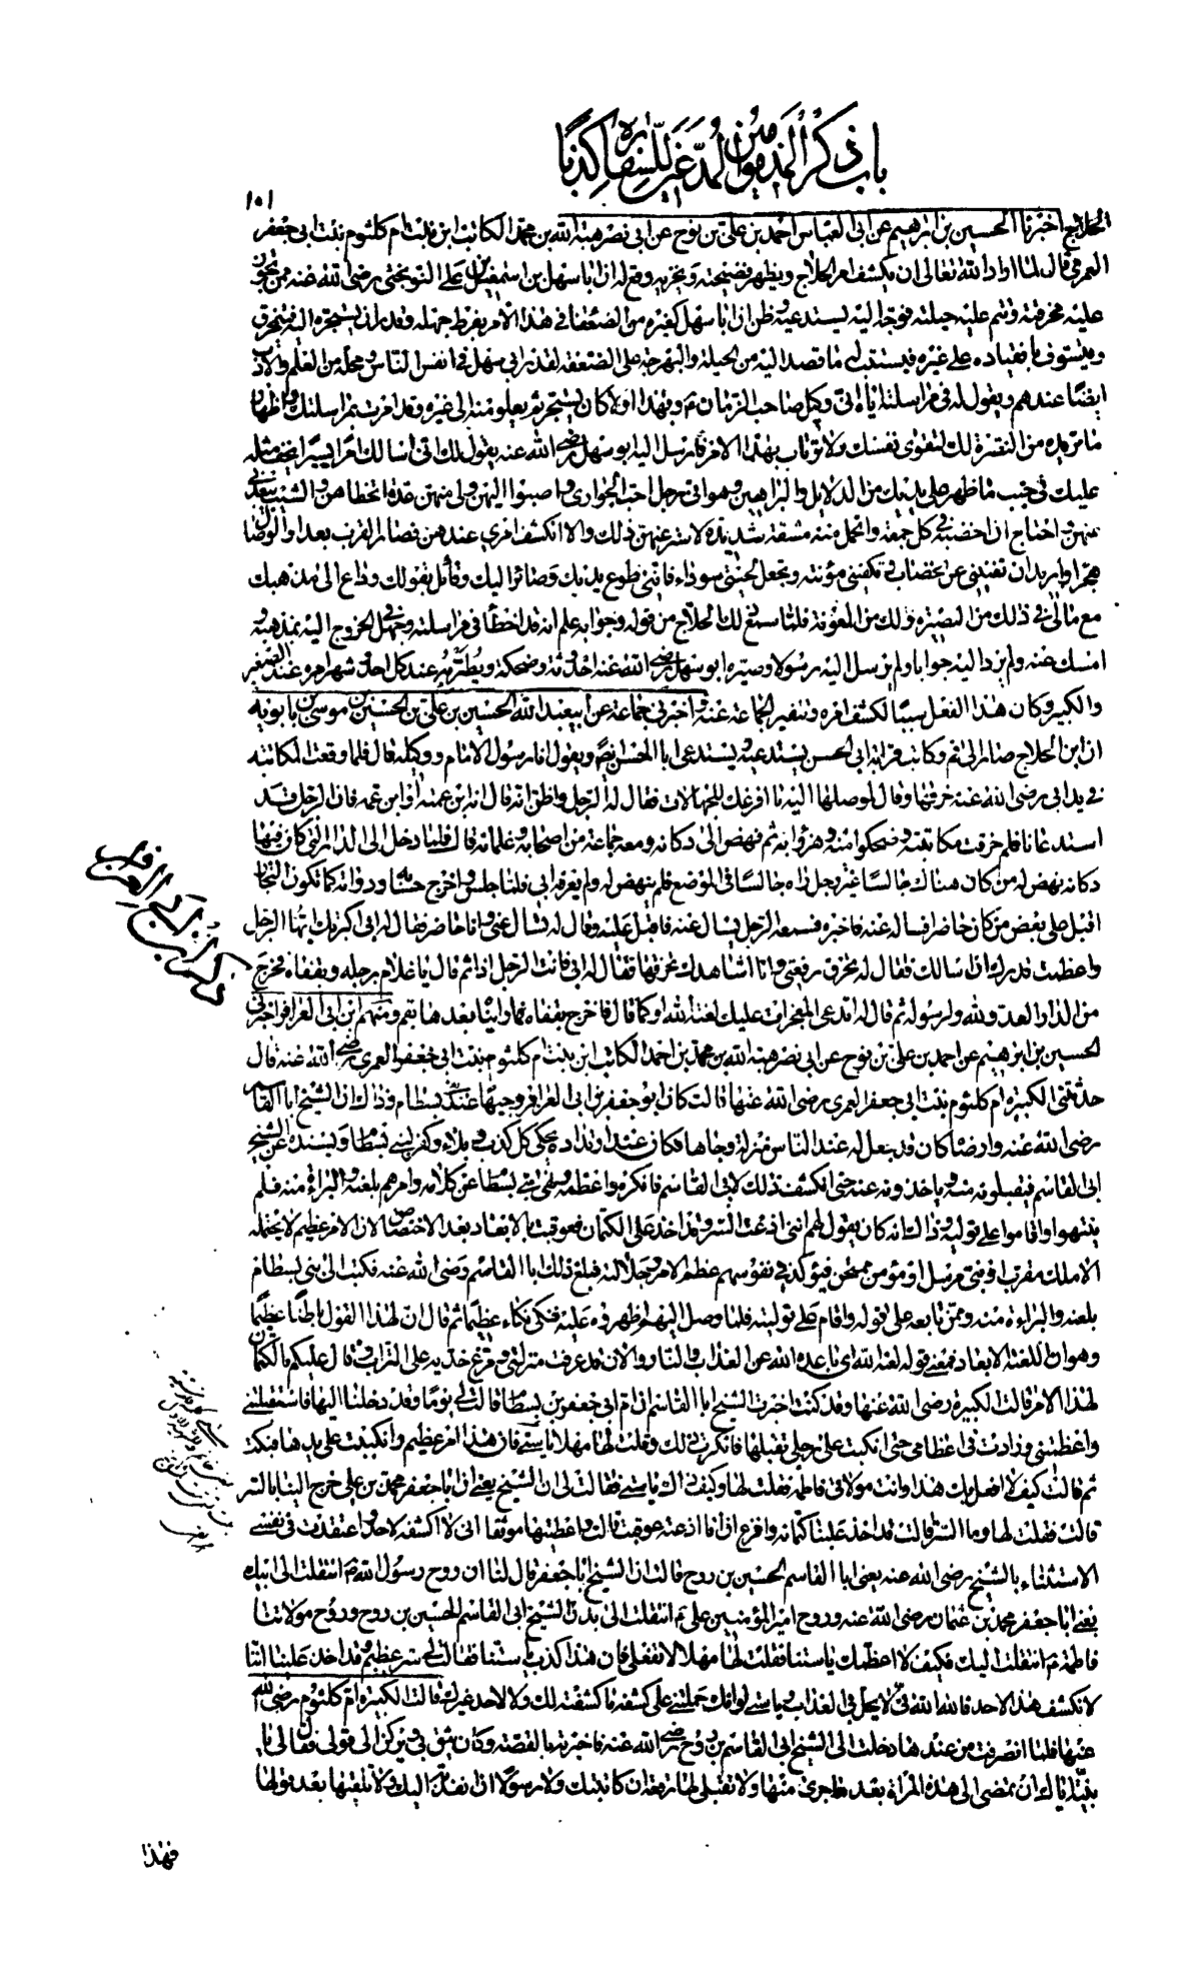 باب ذكر المذمومين المدّعين للسفارة كذبًا
١٥١
الحلاج اخبرنا الحسين بن ابراهيم عن ابي العباس احمد بن علي بن نوح عن ابي نصر هبة الله بن محمد الكاتب ابن بنت ام كلثوم بنت ابي جعفر
العمري قال لما اراد الله تعالى ان يكشف امر الحلاج ويظهر فضيحته ويخزيه وقع له ان ابا سهل بن اسمعيل بن علي النوبختي رضي الله عنه ممن تجوز
عليه مخرقته وتتم عليه حيلته فوجه اليه يستدعيه وظن ان ابا سهل كغيره من الضعفاء في هذا الامر بفرط جهله وقدر ان يستجره اليه فيتمخرق
ويتسوف بانقياده على غيره فيستتب له ما قصد اليه من الحيلة والبهرجة على الضعفة لقدر ابي سهل في انفس الناس ومحله من العلم والادب
ايضا عندهم ويقول له في مراسلته اياه اني وكيل صاحب الزمان م وبهذا اولا كان يستجر ثم يعلو منه الى غيره وقد امرت بمراسلتك واظهار
ما تريده من النصرة لك لتقوى نفسك ولا ترتاب بهذا الامر فارسل اليه ابو سهل رضي الله عنه يقول لك اني اسالك امرا يسيرا يخف مثله
عليك في جنب ما ظهر على يديك من الدلايل والبراهين وهو اني رجل احب الجواري واصبوا اليهن ولي منهن عدة اتخطاهن والشيب يبعدني
عنهن واحتاج ان اخضبه في كل جمعة واتحمل منه مشقة شديدة لاستر عنهن ذلك والا انكشف امري عندهن فصار القرب بعدا والوصال
هجرا واريد ان تغنيني عن الخضاب وتكفيني مؤنته وتجعل لحيتي سوداء فانني طوع يديك وصائر اليك وقائل بقولك وداع الى مذهبك
مع مالي في ذلك من البصيرة ولك من المعونة فلما سمع ذلك الحلاج من قوله وجوابه علم انه قد اخطأ في مراسلته وجهل في الخروج اليه بمذهبه و
امسك عنه ولم يرد اليه جوابا ولم يرسل اليه رسولا وصيره ابو سهل رضي الله عنه احدوثة وضحكة ويطنز به عند كل احد وشهر امره عند الصغير
والكبير وكان هذا الفعل سببا لكشف امره وتنفير الجماعة عنه واخبرني جماعة عن ابي عبد الله الحسين بن علي بن الحسين بن موسى بن بابويه
ان ابن الحلاج صار الى قم وكاتب قرابة ابي الحسن يستدعيه ويستدعي ابا الحسن ايضا ويقول انا رسول الامام ووكيله قال فلما وقعت المكاتبة
في يد ابي رضي الله عنه خرقها وقال لموصلها اليه ما افرغك للجهالات فقال له الرجل واظن انه قال انه ابن عمته او ابن عمه فان الرجل قد
استدعانا فلم خرقت مكاتبته وضحكوا منه وهزؤا به ثم نهض الى دكانه ومعه جماعة من اصحابه وغلمانه قال فلما دخل الى الدار التي كان فيها
دكانه نهض له من كان هناك جالسا غير رجل راه جالسا في الموضع فلم ينهض له ولم يعرفه ابي فلما جلس واخرج حسابه ودواته كما تكون التجار
اقبل على بعض من كان حاضرا فساله عنه فاخبره فسمعه الرجل يسال عنه فاقبل عليه وقال له تسال عني وانا حاضر فقال له ابي اكبرتك ايها الرجل
واعظمت قدرك ان اسالك فقال له تخرق رقعتي وانا اشاهدك تخرقها فقال له ابي فانت الرجل اذا ثم قال يا غلام برجله وبقفاه فخرج
من الدار العدو لله ولرسوله ثم قال له اتدعي المعجزات عليك لعنة الله او كما قال فاخرج بقفاه فما رايناه بعدها بقم ومنهم ابن ابي العزاقر اخبرني
ذكر ابن ابي العزاقر
الحسين بن ابراهيم عن احمد بن علي بن نوح عن ابي نصر هبة الله بن محمد بن احمد الكاتب ابن بنت ام كلثوم بنت ابي جعفر العمري رضي الله عنه قال
حدثتني الكبيرة ام كلثوم بنت ابي جعفر العمري رضي الله عنها قالت كان ابو جعفر بن ابي العزاقر وجيها عند بني بسطام وذاك ان الشيخ ابا القاسم
رضي الله عنه وارضاه كان قد جعل له عند الناس منزلة وجاها فكان عند ارتداده يحكي كل كذب وبلاء وكفر لبني بسطام ويسنده عن الشيخ
ابي القاسم فيقبلونه منه وياخذونه عنه حتى انكشف ذلك لابي القاسم فانكره واعظمه ونهى بني بسطام عن كلامه وامرهم بلعنه والبراءة منه فلم
ينتهوا واقاموا على توليه وذاك انه كان يقول لهم انني اذعت السر وقد اخذ علي الكتمان فعوقبت بالابعاد بعد الاختصاص لان الامر عظيم لا يحتمله
الا ملك مقرب او نبي مرسل او مؤمن ممتحن فيؤكد في نفوسهم عظم الامر وجلالته فبلغ ذلك ابا القاسم رضي الله عنه فكتب الى بني بسطام
بلعنه والبراءة منه وممن تابعه على قوله واقام على توليته فلما وصل اليهم اظهروه عليه فبكى بكاء عظيما ثم قال ان لهذا القول باطنا عظيما
وهو ان اللعنة الابعاد فمعنى قوله لعنه الله اي باعده الله عن العذاب والنار والان قد عرفت منزلتي ومرغ خديه على التراب وقال عليكم بالكتمان
لهذا الامر قالت الكبيرة رضي الله عنها وقد كنت اخبرت الشيخ ابا القاسم ان ام ابي جعفر بن بسطام قالت لي يوما وقد دخلنا اليها فاستقبلتني
واعظمتني وزادت في اعظامي حتى انكبت على رجلي تقبلها فانكرت ذلك وقلت لها مهلا يا ستي فان هذا امر عظيم وانكببت على يدها فبكت
ثم قالت كيف لا افعل بك هذا وانت مولاتي فاطمة فقلت لها وكيف ذاك يا ستي فقالت لي ان الشيخ يعني ان ابا جعفر محمد بن علي خرج الينا بالسر
قالت فقلت لها وما السر قالت قد اخذ علينا كتمانه وافزع ان انا اذعته عوقبت قالت واعطيتها موثقا اني لا اكشفه لاحد واعتقدت في نفسي
الاستثناء بالشيخ رضي الله عنه يعني ابا القاسم الحسين بن روح قالت ان الشيخ ابا جعفر قال لنا ان روح رسول الله ص انتقلت الى ابيك
يعني ابا جعفر محمد بن عثمان رضي الله عنه وروح امير المؤمنين علي ع انتقلت الى بدن الشيخ ابي القاسم الحسين بن روح وروح مولاتنا
فاطمة ع انتقلت اليك فكيف لا اعظمك يا ستنا فقلت لها مهلا لا تفعلي فان هذا كذب يا ستنا فقالت لي سر عظيم وقد اخذ علينا اننا
لا نكشف هذا لاحد فالله الله في لا يحل بي العذاب ويا ستي لولا انك حملتني على كشفه ما كشفته لك ولا لاحد غيرك قالت الكبيرة ام كلثوم رضي الله
عنها فلما انصرفت من عندها دخلت الى الشيخ ابي القاسم بن روح رضي الله عنه فاخبرته بالقصة وكان يثق بي ويركن الى قولي فقال لي يا
بنية اياك ان تمضي الى هذه المرأة بعد ما جرى منها ولا تقبلي لها رقعة ان كاتبتك ولا رسولا ان انفذته اليك ولا تلقيها بعد قولها
فهذا